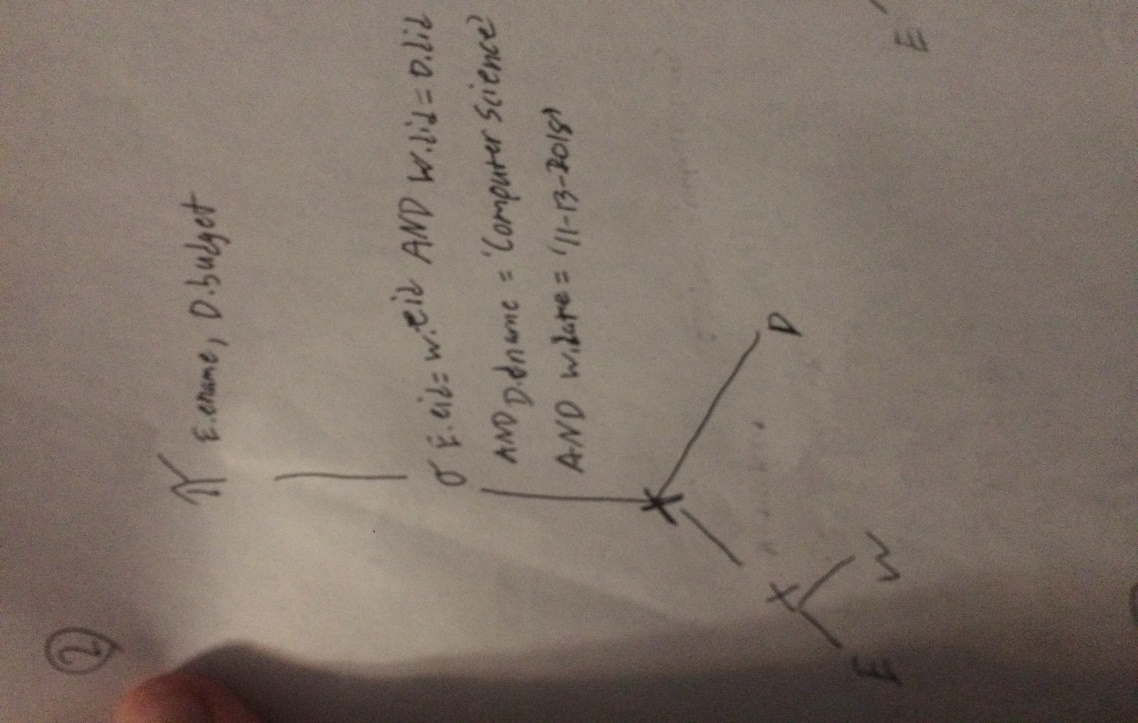 ②
π E.ename, D.budget
σ E.eid = W.eid AND W.did = D.did
AND D.dname = 'Computer Science'
AND W.date = '11-13-2018'
X
D
X
E W
E